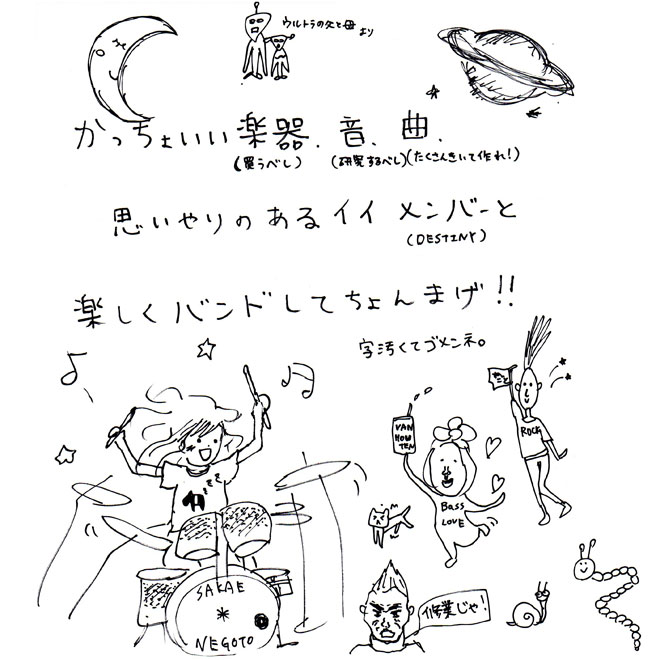 ウルトラの父と母より
かっちょいい楽器、音、曲、
(買うべし) (研究するべし)(たくさんきいて作れ!)
思いやりのあるイイメンバーと
(DESTINY)
楽しくバンドしてちょんまげ!!
字汚くてゴメンネ。
VAN
HOW
TEN
ROCK
BASS
LOVE
SAKAE
NEGOTO
修業じゃ!